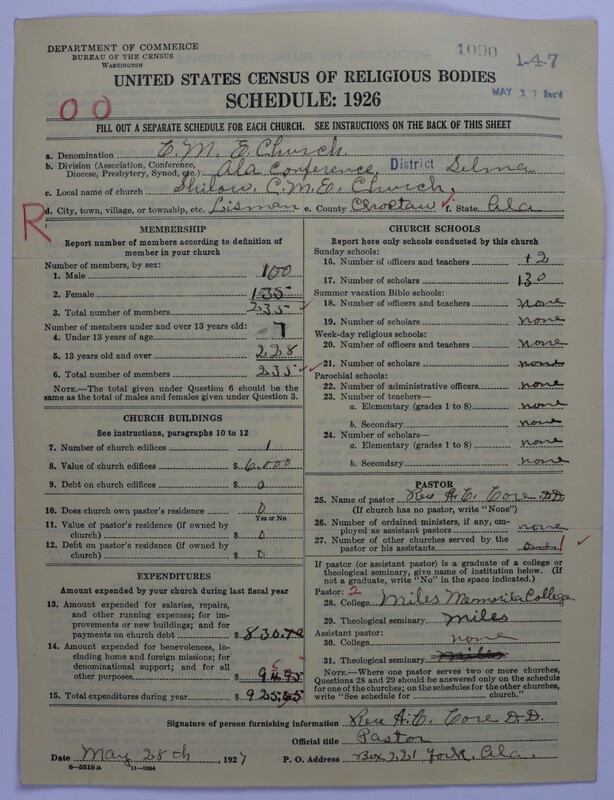 DEPARTMENT OF COMMERCE
BUREAU OF THE CENSUS
WASHINGTON
1090
1-4-7
MAY 31 Rec'd
UNITED STATES CENSUS OF RELIGIOUS BODIES
SCHEDULE: 1926
00
FILL OUT A SEPARATE SCHEDULE FOR EACH CHURCH. SEE INSTRUCTIONS ON THE BACK OF THIS SHEET
a. Denomination C. M. E. Church.
b. Division (Association, Conference, Diocese, Presbytery, Synod, etc.) Ala Conference, District Selma
c. Local name of church Shilow, C. M. E. Church,
R
d. City, town, village, or township, etc. Lisman e. County Choctaw f. State Ala
MEMBERSHIP
Report number of members according to definition of
member in your church
Number of members, by sex:
1. Male 100
2. Female 135
3. Total number of members 235
Number of members under and over 13 years old:
4. Under 13 years of age 7
5. 13 years old and over 228
6. Total number of members 235
NOTE.—The total given under Question 6 should be
same as the total of males and females given under Question 3.
CHURCH BUILDINGS
See instructions, paragraphs 10 to 12
7. Number of church edifices 1
8. Value of church edifices $ 6,000
9. Debt on church edifices $ 0
10. Does church own pastor's residence 0
Yes or No
11. Value of pastor's residence (if owned by
church) $ 0
12. Debt on pastor's residence (if owned by
church) $ 0
EXPENDITURES
Amount expended by your church during last fiscal year
13. Amount expended for salaries, repairs,
and other running expenses; for im-
provements or new buildings; and for
payments on church debt $ 830.70
14. Amount expended for benevolences, in-
cluding home and foreign missions; for
denominational support; and for all
other purposes $
15. Total expenditures during year $
CHURCH SCHOOLS
Report here only schools conducted by this church
Sunday schools:
16. Number of officers and teachers
17. Number of scholars 130
Summer vacation Bible schools:
18. Number of officers and teachers none
19. Number of scholars none
Week-day religious schools:
20. Number of officers and teachers none
21. Number of scholars none
Parochial schools:
22. Number of administrative officers none
23. Number of teachers—
a. Elementary (grades 1 to 8) none
b. Secondary none
24. Number of scholars—
a. Elementary (grades 1 to 8) none
b. Secondary none
PASTOR
25. Name of pastor Rev A. C. Core D.D.
(If church has no pastor, write "None")
26. Number of ordained ministers, if any, em-
ployed as assistant pastors none
27. Number of other churches served by the
pastor or his assistants 1
If pastor (or assistant pastor) is a graduate of a college or
theological seminary, give name of institution below. (If
not a graduate, write "No" in the space indicated.)
Pastor: 2
28. College Miles Memorila College
29. Theological seminary Miles
Assistant pastor:
30. College none
31. Theological seminary Miles
NOTE.—Where one pastor serves two or more churches,
Questions 28 and 29 should be answered only on the schedule
for one of the churches; on the schedules for the other churches,
write "See schedule for church."
Signature of person furnishing information Rev A. C. Core D.D.
Official title Pastor
Date May 28th, 1927 P. O. Address Box 221 York, Ala.
8—5518a 11—9054